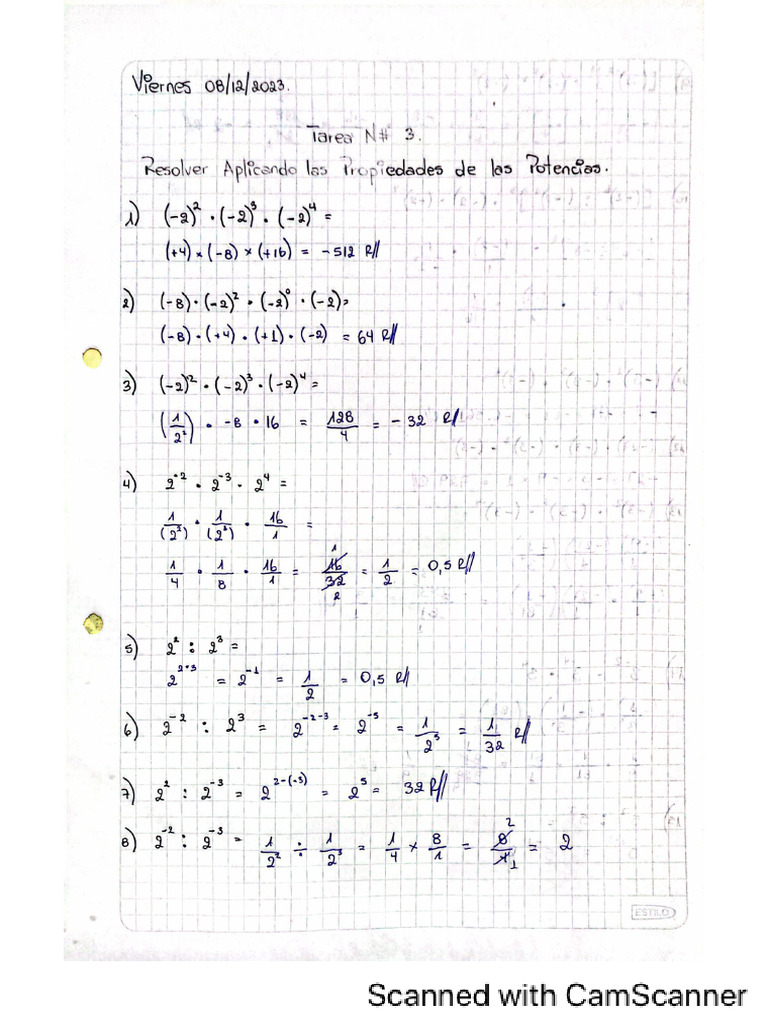 Viernes 08/12/2023.
Tarea N# 3.
Resolver Aplicando las Propiedades de las Potencias.
1) (-2)² · (-2)³ · (-2)⁴ =
(+4) × (-8) × (+16) = -512 R//
2) (-8) · (-2)² · (-2)⁰ · (-2) =
(-8) · (+4) · (+1) · (-2) = 64 R//
3) (-2)⁻² · (-2)³ · (-2)⁴ =
(1/2²) · -8 · 16 = 128/4 = -32 R//
4) 2⁻² · 2⁻³ · 2⁴ =
1/(2²) · 1/(2³) · 16/1 =
1/4 · 1/8 · 16/1 = 16/32 = 1/2 = 0,5 R//
5) 2² : 2³ =
2²⁻³ = 2⁻¹ = 1/2 = 0,5 R//
6) 2⁻² : 2³ = 2⁻²⁻³ = 2⁻⁵ = 1/2⁵ = 1/32 R//
7) 2² : 2⁻³ = 2²⁻⁽⁻³⁾ = 2⁵ = 32 R//
8) 2⁻² : 2⁻³ = 1/2² ÷ 1/2³ = 1/4 × 8/1 = 8/4 = 2
ESTILO
Scanned with CamScanner